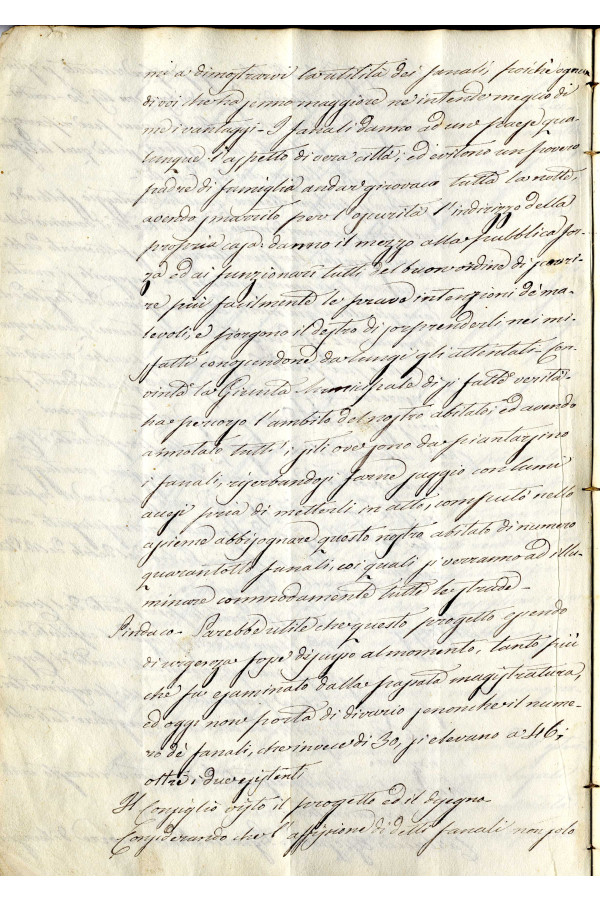 mi a dimostrarvi la utilità dei fanali, poichè ognun
di voi che ha senno maggiore ne intende meglio di
me i vantaggi - I fanali danno ad un paese qua-
lunque l'aspetto di vera città; ed evitono un povero
padre di famiglia andar girovaco tutta la notte,
avendo smarrito per l'oscurità l'indirizzo della
propria casa: danno il mezzo alla pubblica for-
za ed ai funzionarî tutti del buon ordine di
re più facilmente le prave intenzioni de' ma-
levoli, e porgono il destro di sorprenderli nei mi-
sfatti conoscendone da lungi gli attentati - Con-
vinta la Giunta Municipale di sì fatte verità
ha percorso l'ambito del nostro abitato; ed avendo
annotato tutt'i siti ove sono da piantarsino
i fanali, riserbandosi farne saggio con lumi
accesi pria di metterli in alto, computò nello
assieme abbisognare questo nostro abitato di numero
quarantotto fanali, coi quali si verranno ad illu-
minare commodamente tutte le strade -
Sindaco - Sarebbe utile che questo progetto essendo
di urgenza fosse discusso al momento, tanto più
che fu esaminato dalla passata magistratura,
ed oggi non porta di divario senonchè il nume-
ro de' fanali, che invece di 30, si elevano a 46,
oltre i due esistenti
Il Consiglio visto il progetto ed il disegno
Considerando che l'affissione di detti fanali non solo